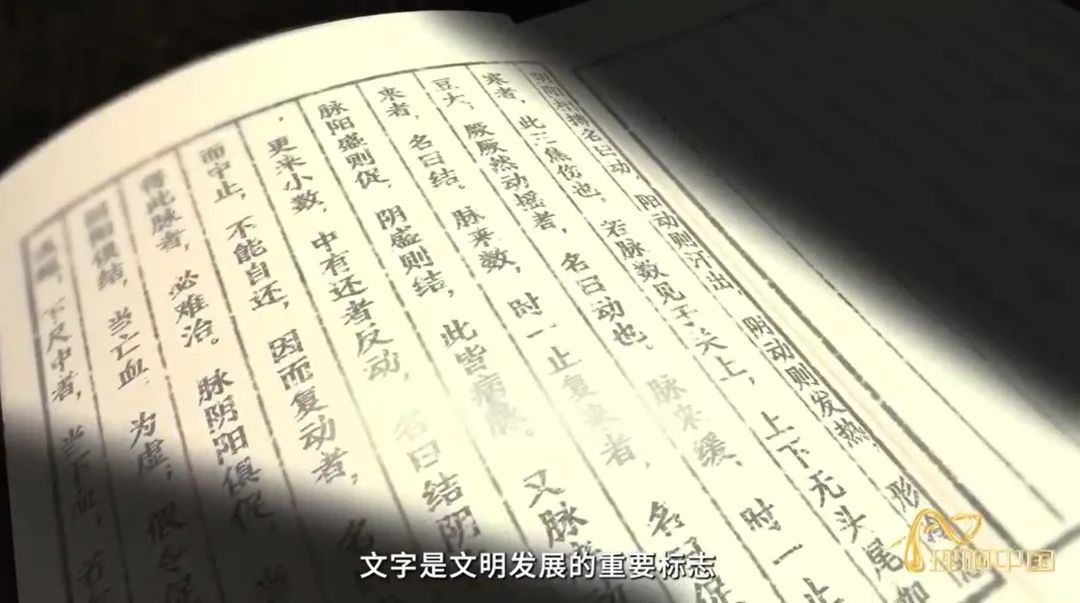 名曰动，阳动则汗出，阴动则发热，形
寒者，此三焦伤也，若脉数见于关上，上下无头尾如
豆大，厥厥然动摇者，名曰动也。脉来缓，时一止
来者，名曰结。脉来数，时一止复来者，名曰促
脉阳盛则促，阴盛则结，此皆病脉。又脉
，更来小数，中有还者反动，名曰结阴
而中止，不能自还，因而复动者，名
得此脉者，必难治。脉阴阳俱促，当
阳俱结，当亡血，为虚，假令促
下尺中者，当下血，若
文字是文明发展的重要标志
中国